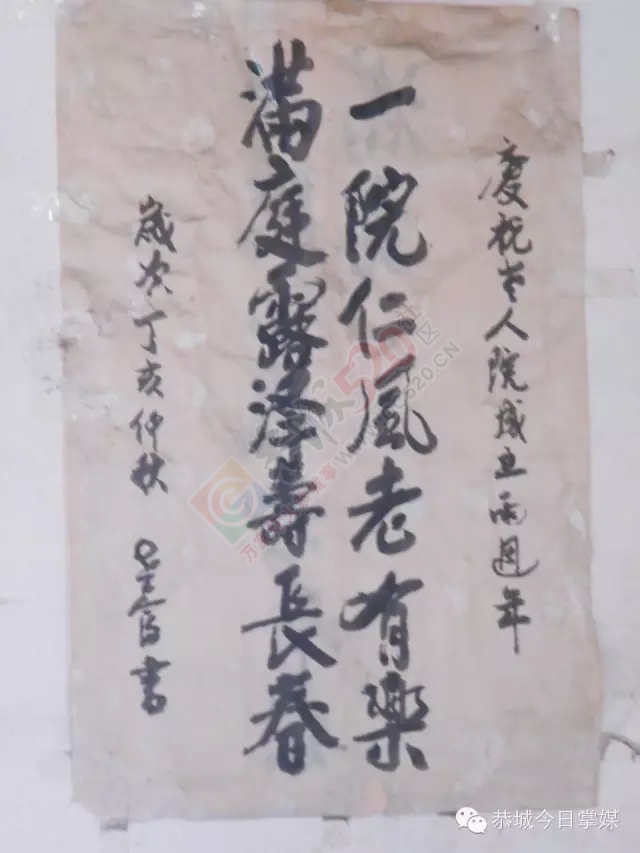 慶祝老人院成立兩週年
一院仁風老有樂
滿庭露澤壽長春
歲次丁亥仲秋
書
恭城今日掌媒